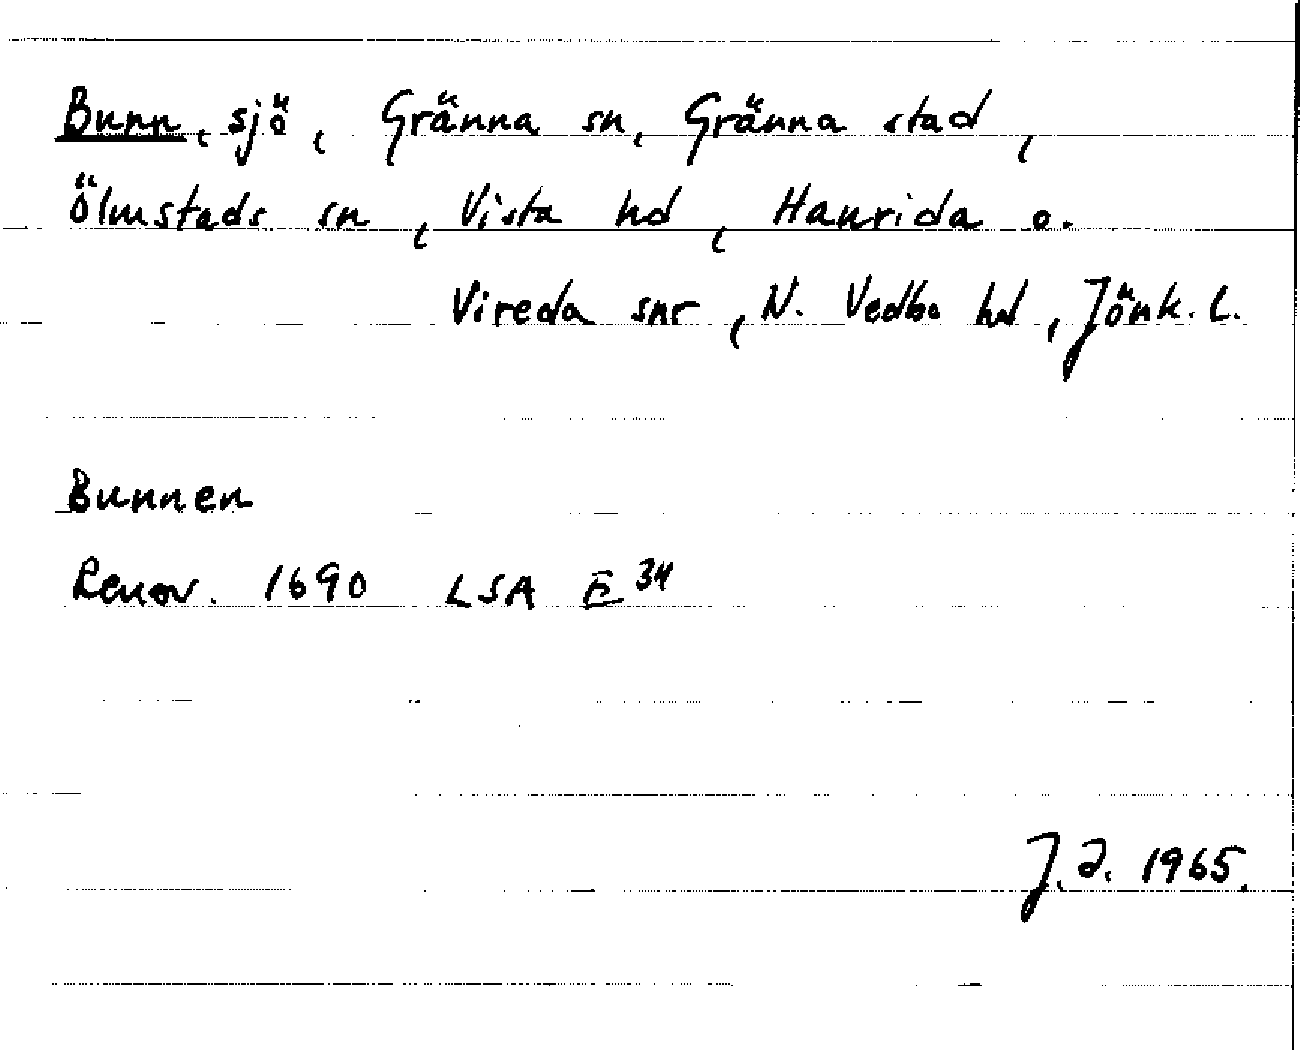 Bunn, sjö, Gränna sn, Gränna stad,
Ölmstads sn, Vista hd, Haurida o.
Vireda snr, N. Vedbo hd, Jönk. l.
Bunnen
Renov. 1690 LSA E 34
J.Ö. 1965.